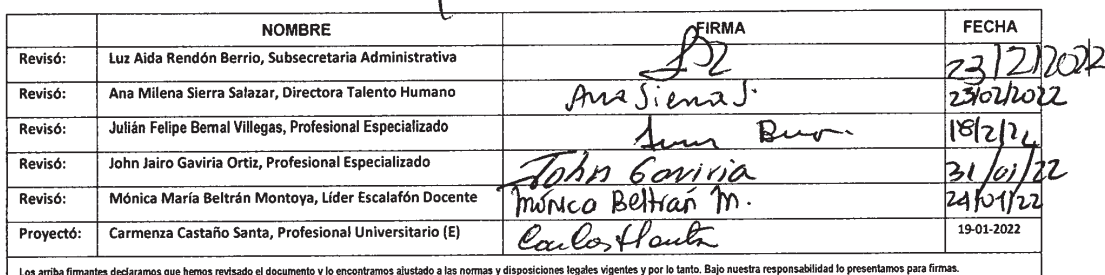 NOMBRE FIRMA FECHA
Revisó: Luz Aida Rendón Berrio, Subsecretaria Administrativa 23/2/2022
Revisó: Ana Milena Sierra Salazar, Directora Talento Humano Ana Sierra S. 23/02/2022
Revisó: Julián Felipe Bernal Villegas, Profesional Especializado 18/2/22
Revisó: John Jairo Gaviria Ortiz, Profesional Especializado John Gaviria 31/01/22
Revisó: Mónica María Beltrán Montoya, Líder Escalafón Docente Mónica Beltrán M. 24/01/22
Proyectó: Carmenza Castaño Santa, Profesional Universitario (E) 19-01-2022
Los arriba firmantes declaramos que hemos revisado el documento y lo encontramos ajustado a las normas y disposiciones legales vigentes y por lo tanto. Bajo nuestra responsabilidad lo presentamos para firmas.